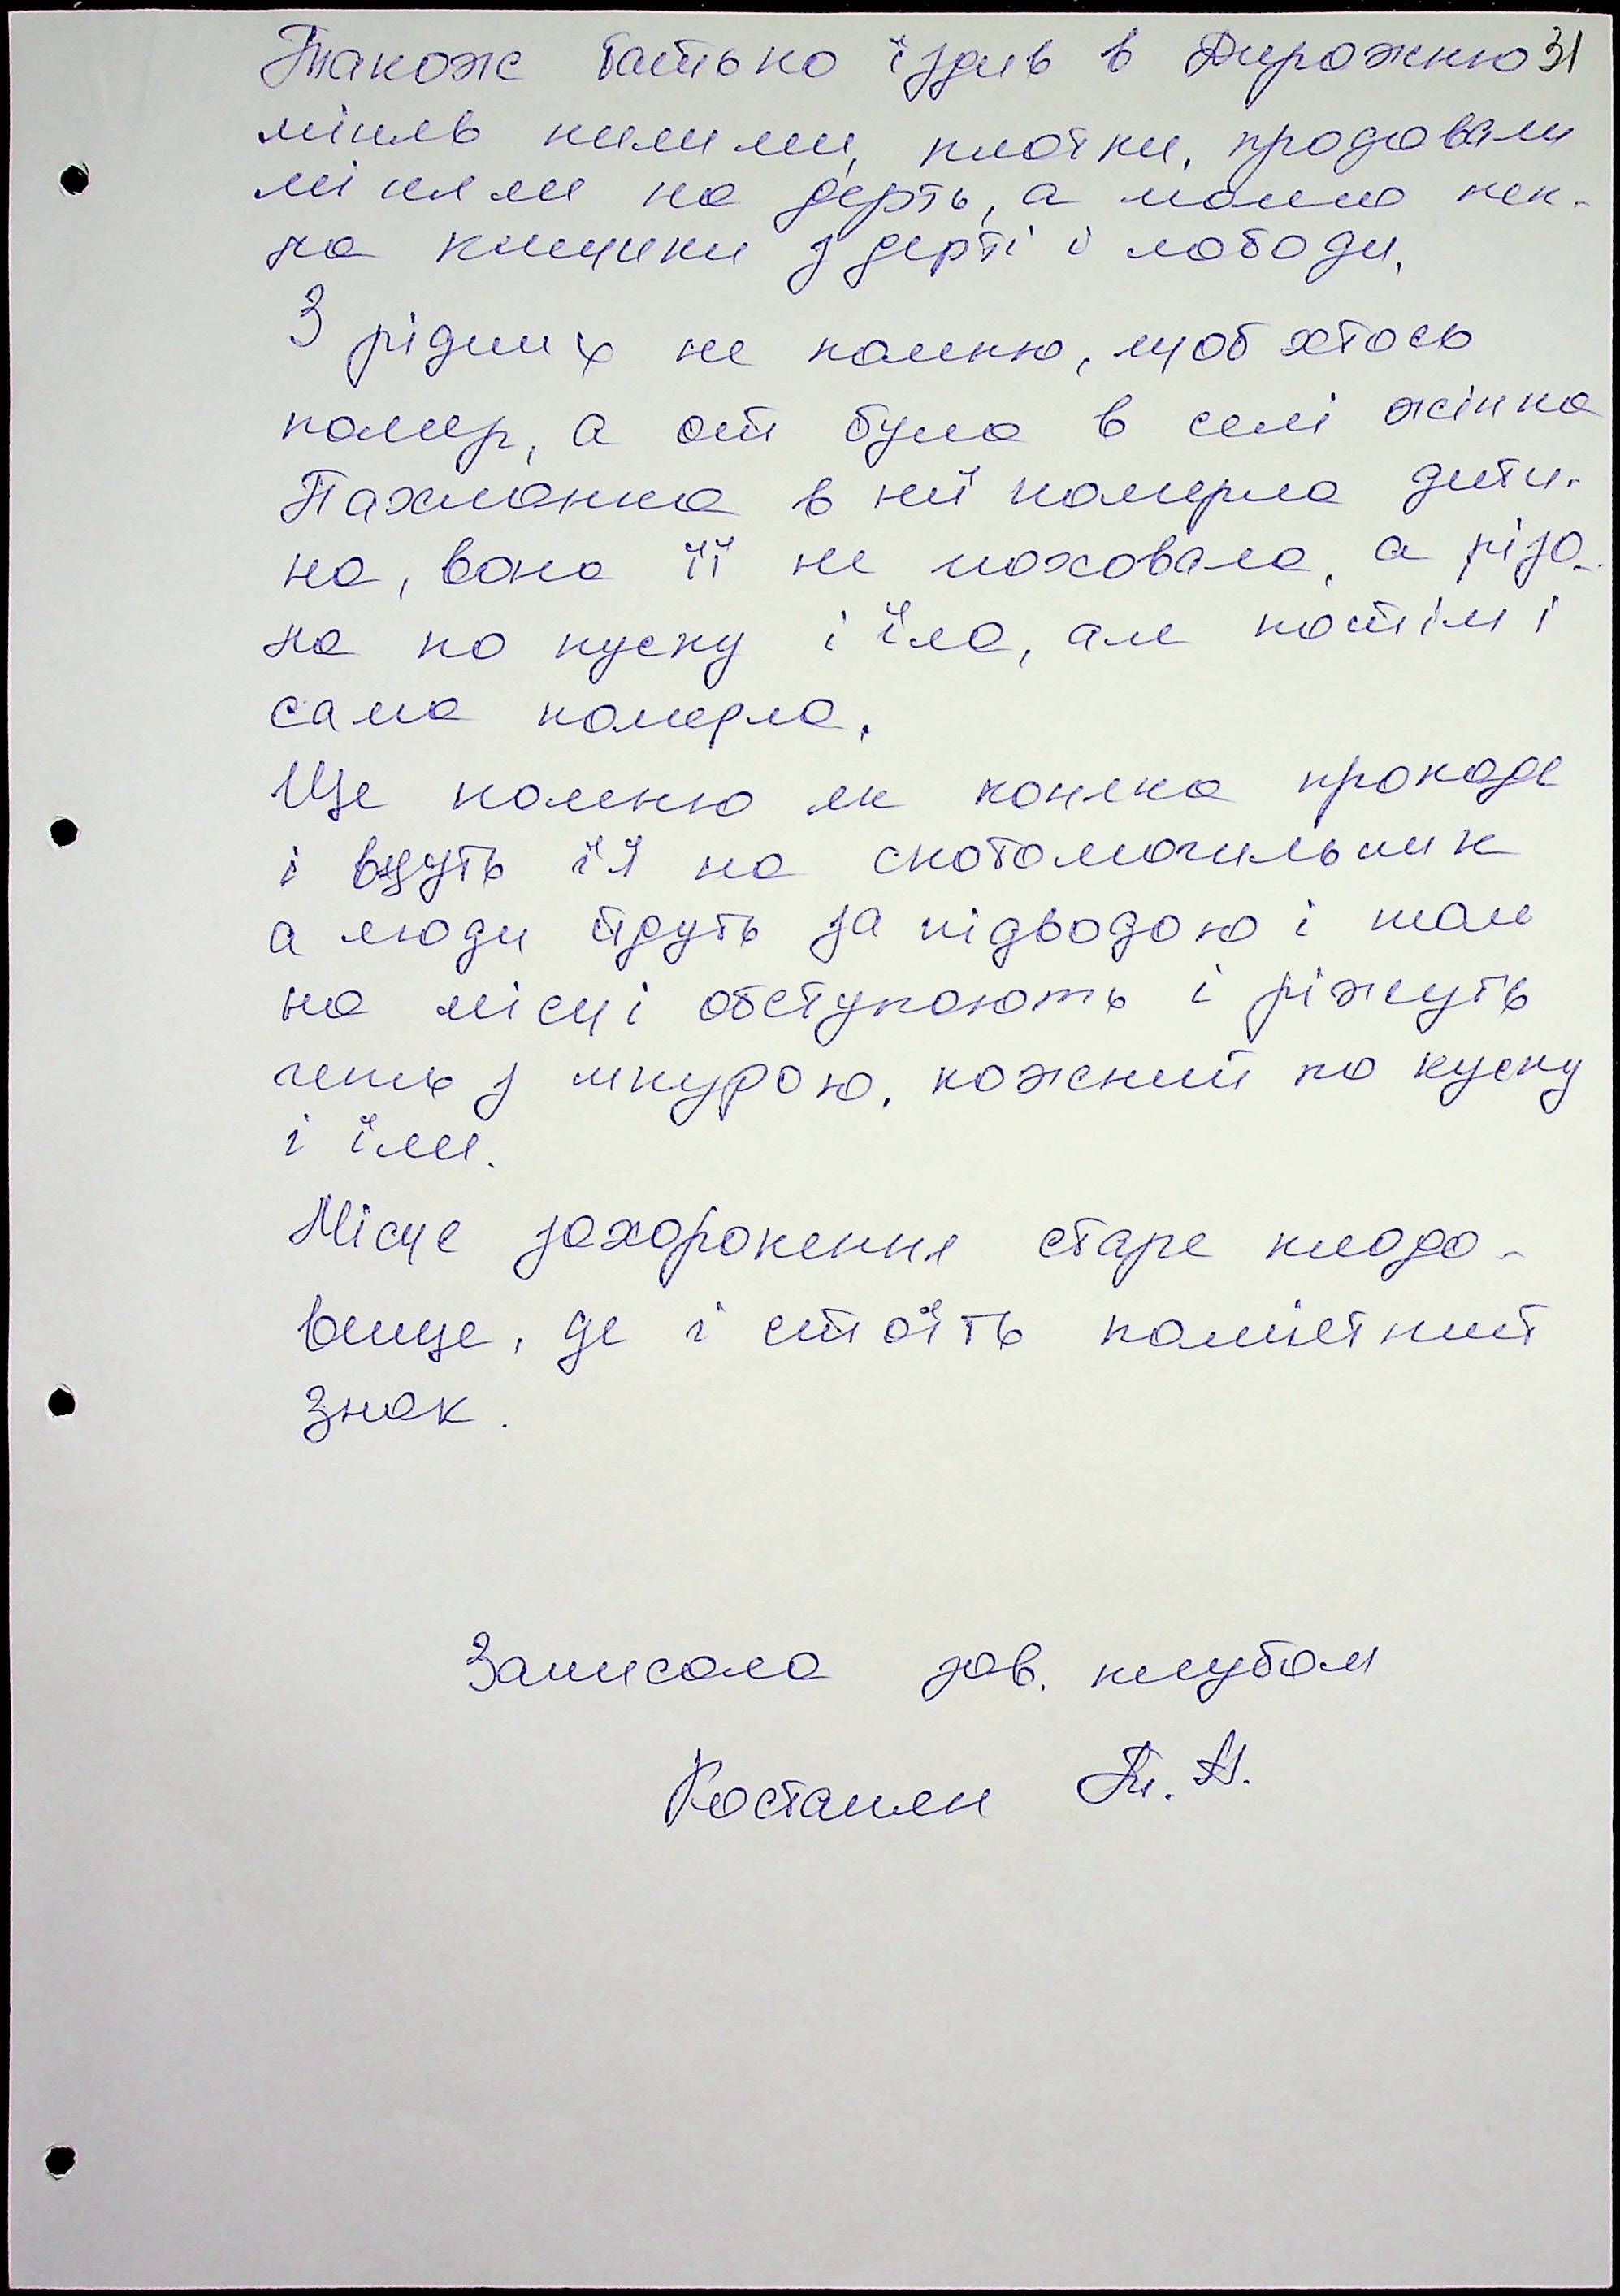 Також батько їздив в Дирожню 31
міняв килими, платки, продавали
міняли на дерть, а мама пек-
ла книшики з дерті і лободи.
З рідних не памню, щоб хтось
помер, а от була в селі жінка
Пахманка в неї померла дити-
на, вона її не поховала, а різа-
ла по куску і їла, але потім і
сама померла.
Ще помню як коняка пропаде
і везуть її на скотомогильник
а люди йдуть за підводою і там
на місці обступають і ріжуть
геть з шкурою, кожний по куску
і їли.
Місце захоронення старе кладо-
вище, де і стоїть памʼятний
знак.
Записала зав. клубом
Костанян